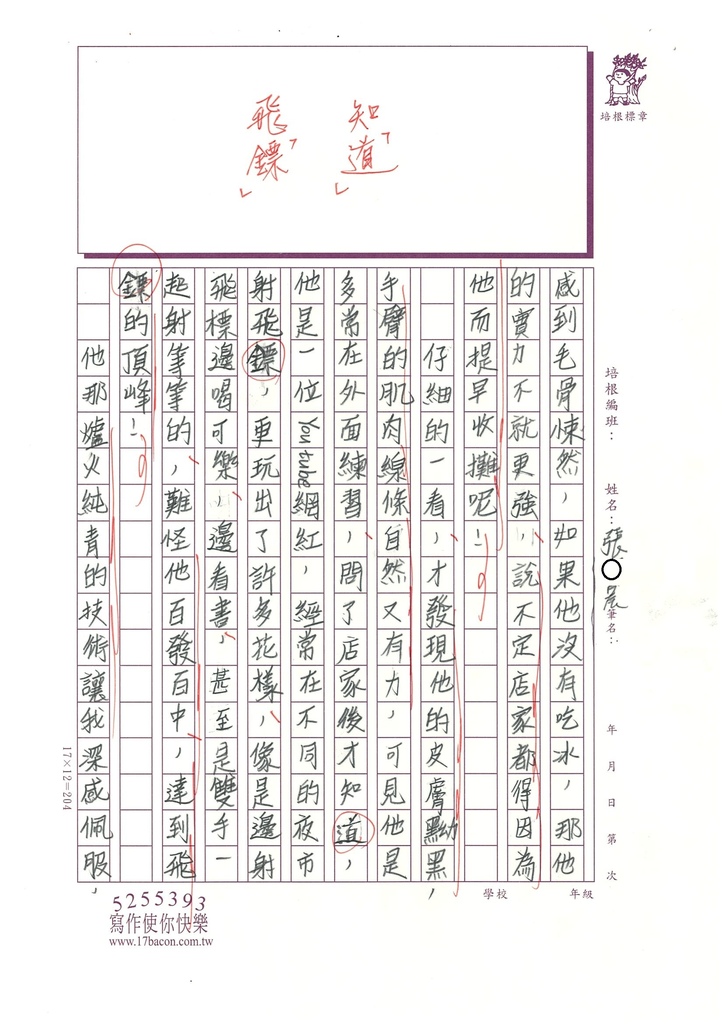 知道
飛鏢
培根標章
培根編班：
姓名：張○晨
筆名：
年 月 日 第 次
學校
年級
感到毛骨悚然，如果他沒有吃冰，那他
的實力不就更強，說不定店家都得因為
他而提早收攤呢！
仔細的一看，才發現他的皮膚黝黑，
手臂的肌肉線條自然又有力，可見他是
多常在外面練習，問了店家後才知道，
他是一位Youtube網紅，經常在不同的夜市
射飛鏢，車玩出了許多花樣，像是邊射
飛標邊喝可樂，邊看書，甚至是雙手一
起射等等的，難怪他百發百中，達到飛
鏢的頂峰！
他那爐火純青的技術讓我深感佩服，
17×12=204
5255393
寫作使你快樂
www.17bacon.com.tw